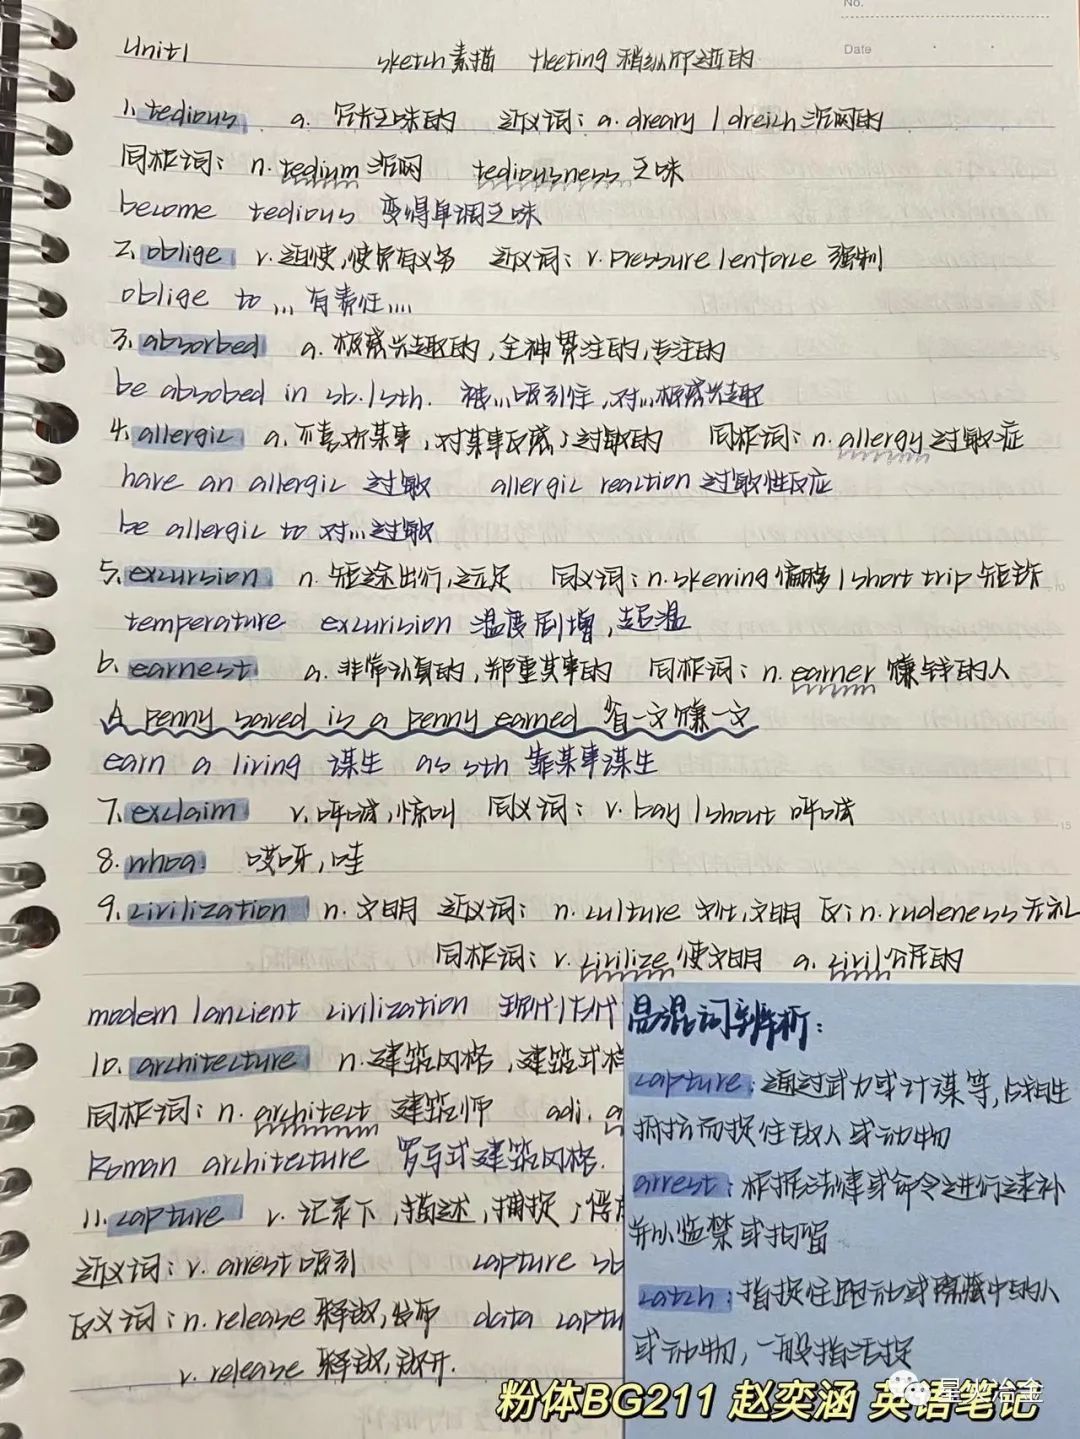 No.
Date
Unit1 sketch 素描 fleeting 稍纵即逝的
1. tedious a. 冗长乏味的 近义词: a. dreary / dreich 沉闷的
同根词: n. tedium 沉闷 tediousness 乏味
become tedious 变得单调乏味
2. oblige v. 迫使,使负有义务 近义词: v. pressure / enforce 强制
oblige to ... 有责任....
3. absorbed a. 极感兴趣的,全神贯注的,专注的
be absobed in sb. / sth. 被...吸引住,对...极感兴趣
4. allergic a. 不喜欢某事,对某事反感;过敏的 同根词: n. allergy 过敏症
have an allergic 过敏 allergic reaction 过敏性反应
be allergic to 对...过敏
5. excursion n. 短途出行,远足 同义词: n. skewing 偏移 / short trip 短途
temperature excurision 温度剧增,起温
6. earnest a. 非常认真的,郑重其事的 同根词: n. earner 赚钱的人
A penny saved is a penny earned 省一文赚一文
earn a living 谋生 as sth 靠某事谋生
7. exclaim v. 呼喊,惊叫 同义词: v. bay / shout 呼喊
8. whoa. 哎呀,哇
9. civilization n. 文明 近义词: n. culture 文化,文明 反: n. rudeness 无礼
同根词: v. civilize 使文明 a. civil 公民的
modern / ancient civilization 现代/古代
10. architecture n. 建筑风格,建筑式样
同根词: n. architect 建筑师 adj. a
Roman architecture 罗马式建筑风格.
11. capture v. 记录下,描述,捕捉;俘
近义词: v. arrest 吸引 capture sb
反义词: n. release 释放,发布 data captu
v. release 释放,放开.
易混词辨析:
capture: 通过武力或计谋等,战胜
抵抗而捉住敌人或动物
arrest: 根据法律或命令进行逮补
并以监禁或拘留
catch: 指捉住跑动或隐藏中的人
或动物,一般指活捉
星火冶金
粉体BG211 赵奕涵 英语笔记